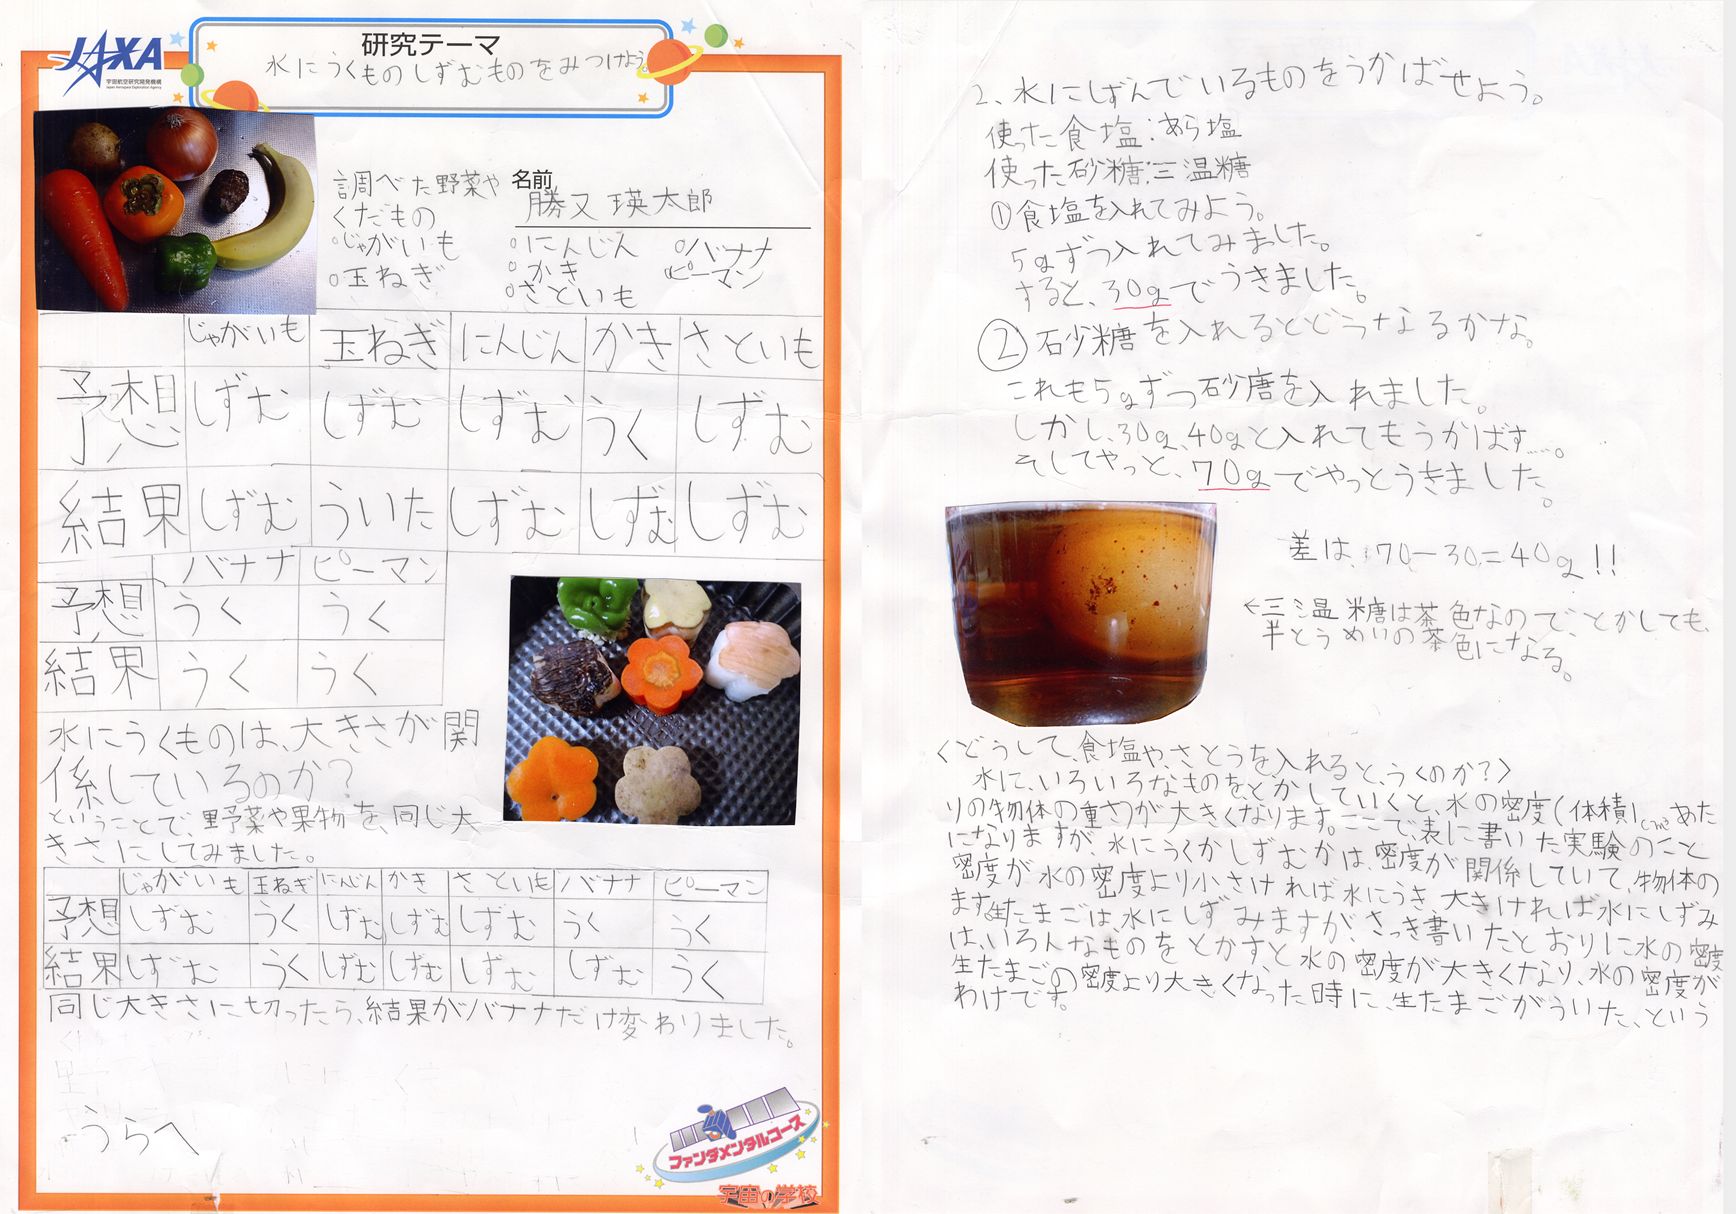 JAXA
宇宙航空研究開発機構
Japan Aerospace Exploration Agency
研究テーマ
水にうくものしずむものをみつけよう
調べた野菜や
くだもの
名前
勝又 瑛太郎
○じゃがいも
○玉ねぎ
○にんじん
○かき
○さといも
○バナナ
○ピーマン
じゃがいも 玉ねぎ にんじん かき さといも
予想 しずむ しずむ しずむ うく しずむ
結果 しずむ ういた しずむ しずむ しずむ
バナナ ピーマン
予想 うく うく
結果 うく うく
水にうくものは、大きさが関
係しているのか?
ということで、野菜や果物を、同じ大
きさにしてみました。
じゃがいも 玉ねぎ にんじん かき さといも バナナ ピーマン
予想 しずむ うく しずむ しずむ しずむ うく うく
結果 しずむ うく しずむ しずむ しずむ しずむ うく
同じ大きさに切ったら、結果がバナナだけ変わりました。
うらへ
ファンダメンタルコース
宇宙の学校
2、水にしずんでいるものをうかばせよう。
使った食塩:あら塩
使った砂糖:三温糖
①食塩を入れてみよう。
5gずつ入れてみました。
すると、30gでうきました。
②砂糖を入れるとどうなるかな。
これも5gずつ砂唐を入れました。
しかし、30g、40gと入れてもうかばず……。
そしてやっと、70gでやっとうきました。
差は、70-30=40g!!
←三温糖は茶色なので、とかしても、
半とうめいの茶色になる。
〈どうして、食塩や、さとうを入れると、うくのか?〉
水に、いろいろなものを、とかしていくと、水の密度(体積1cm³あた
りの物体の重さ)が大きくなります。ここで、表に書いた実験のこと
になりますが、水にうくかしずむかは、密度が関係していて、物体の
密度が水の密度より小さければ水にうき、大きければ水にしずみ
ます。生たまごは水にしずみますが、さっき書いたとおりに水の密度
は、いろんなものをとかすと水の密度が大きくなり、水の密度が
生たまごの密度より大きくなった時に、生たまごがういた、という
わけです。